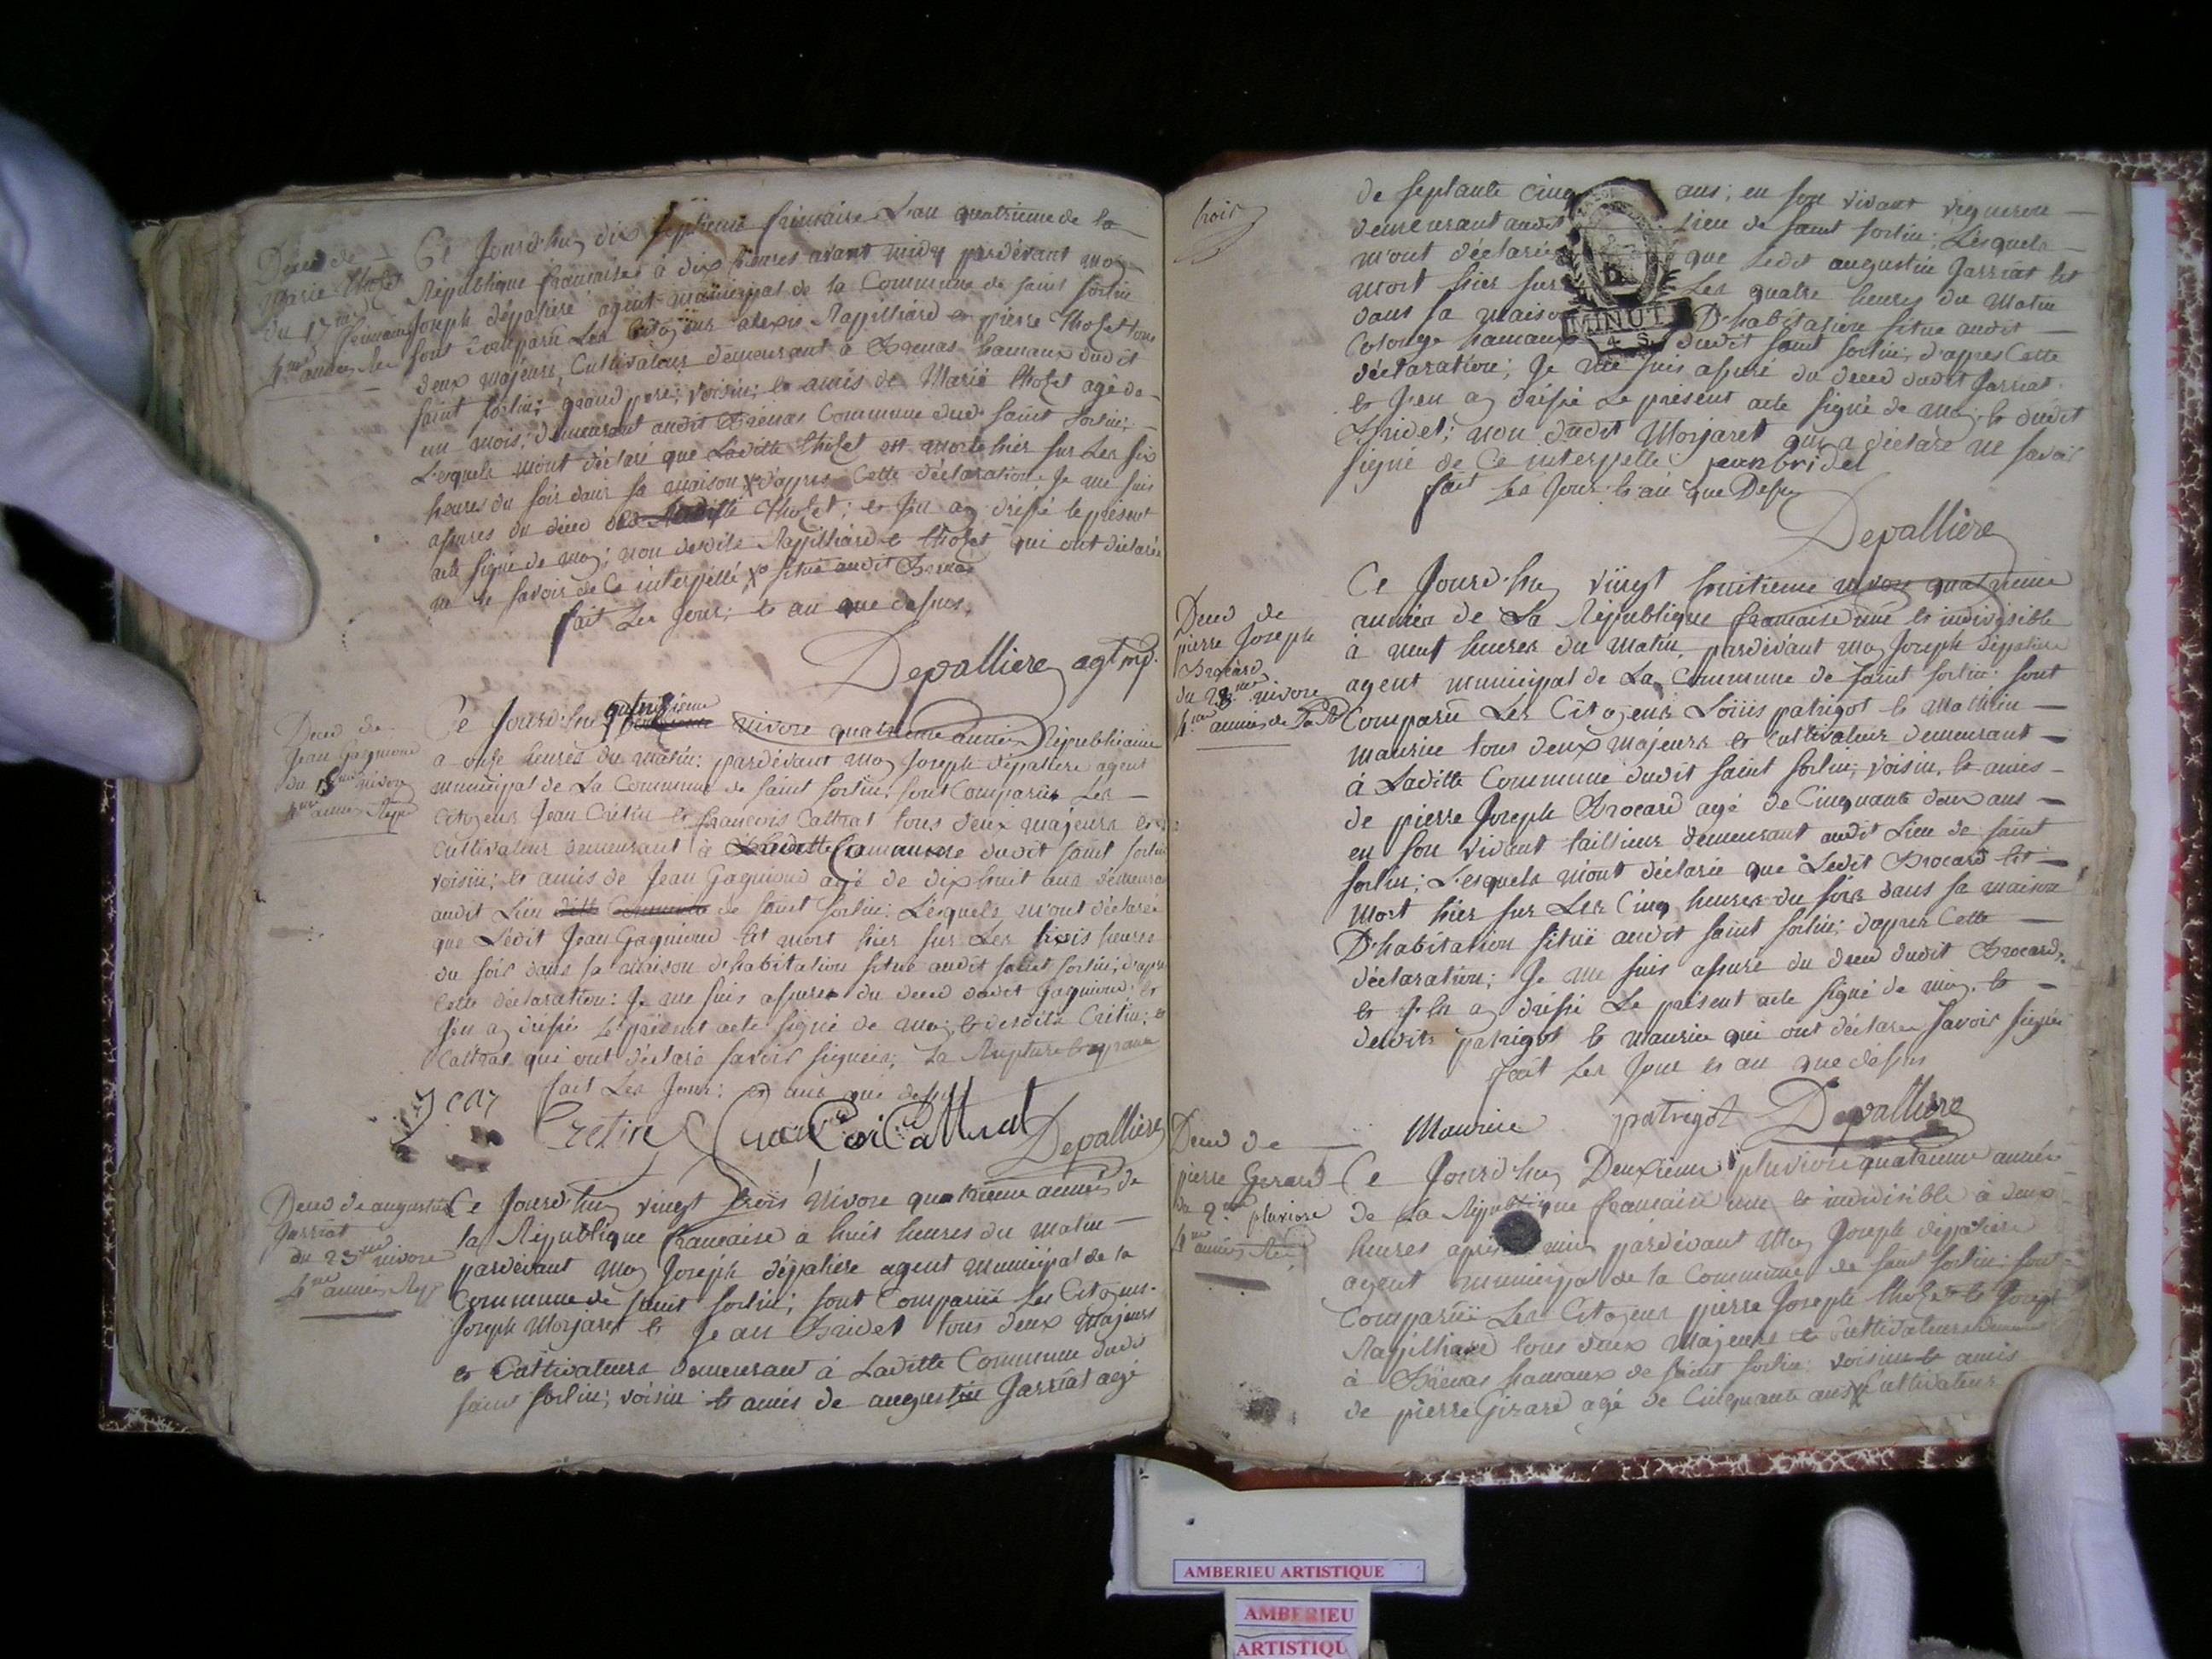 Deced de
Marie thoset
du 17me frimaire
4me année Rep
Ce Jourd'huy dix septieme frimaire L'an quatrieme de la
République francaise à dix heures avant midy pardevant moy
Joseph depaliere agent municipal de la Commune de saint sorlin
sont comparu Les Citoyens alexis Rappilliard et pierre thoset tous
deux majeurs, Cultivateurs demeurant à Brenas hamaux dudit
saint sorlin; grand pere; voisin; et amis de Marie thoset agé de
un mois; demeurant audit Brenas Commune dud. saint sorlin;
Lesquels m'ont déclaré que Laditte thoset est morte hier sur Les six
heures du soir dans sa maison X d'apres Cette déclaration; Je me suis
assures du deced de Thoset; et J'en ay dressé le présent
acte signé de moy; non desdits Rappilliard et thoset qui ont déclarée
ne le savoir de Ce interpellé X situé audit Brenas
fait Les Jour; et an que dessus.
Depalliere agt mp.
Deced de
Jean Gagniond
du nivose
4me année Rep
Ce Jourd'huy nivose quatrieme année Républicaine
a onze heures du matin: pardévant moy Joseph depaliere agent
municipal de La Commune de saint sorlin; sont Comparus Les
Citoyens Jean Cretin et francois Cattrat tous deux majeurs et
Cultivateurs demeurant à Laditte Commune dudit saint sorlin
voisin; et amis de Jean Gagniond agé de dix huit ans demeurant
audit Lieu ditte Commune de saint sorlin: Lesquels m'ont déclaré
que Ledit Jean Gagniond est mort hier sur Les trois heures
du soir dans sa maison d'habitation situé audit saint sorlin; d'apres
Cette déclaration: Je me suis assurer du deced dudit Gagniond: et
J'en ay dressé Le présent acte signé de moy; et desdits Cretin; et
Cattrat qui ont déclaré savoir signer;
fait Les Jour: et ans que dessus
Jean Cretin francoi Cattrat Depalliere
Deced de augustin
Jarriat
du 23me nivose
4me année Rep
Ce Jourd'huy vingt trois nivose quatrieme année de
la République francaise à huit heures du matin
pardévant moy Joseph dépaliere agent municipal de la
Commune de saint sorlin; sont Comparüe Les Citoyens
Joseph Morjaret et Jean Bridet tous deux majeurs
et Cultivateurs demeurant à Laditte Commune dudit
saint sorlin; voisin et amis de augustin Jarriat agé
trois
de septante cinq ans; en son vivant vigneron
demeurant audit Lieu de saint sorlin; Lesquels
m'ont déclarée que Ledit augustin Jarriat est
mort hier sur Les quatre heures du Matin
dans sa maison D'habitation situe audit
Colonge hamaux dudit saint sorlin; d'apres Cette
déclaration; Je me suis assuré du deced dudit Jarriat.
et J'en ay dressé Le présent acte signé de moy et dudit
Bridet; non dudit Morjaret qui a déclaré ne savoir
signé de Ce interpellé. jean bridet
fait Les Jour et an que Dessus
MINUT
4 S.
Depalliere
Deced de
pierre Joseph
Brocard
du 28me nivose
4me année de La R
Ce Jourd'huy vingt huitieme nivose quatrieme
année de La République francaise une et indivisible
à neuf heures du Matin, pardévant moy Joseph Dépaliere
agent municipal de La Commune de saint sorlin: sont
Comparü Les Citoyens Loüis patrigot et Mathieu
Maurice tous deux majeurs et cultivateurs demeurant
à Laditte Commune dudit saint sorlin; voisin, et amis
de pierre Joseph Brocard agé de Cinquante deux ans
en son vivant taillieur demeurant audit Lieu de saint
sorlin; Lesquels m'ont déclarée que Ledit Brocard est
Mort hier sur Les Cinq heures du soir dans sa maison
D'habitation situé audit saint sorlin; d'apres Cette
déclaration; Je me suis assuré du deced dudit Brocard;
et J'en ay dressé Le présent acte signé de moy, et
desdits patrigot et maurice qui ont déclarer savoir signer
fait Les Jour et an que dessus
Maurice patrigot Depalliere
Deced de
pierre Gerard
du 2me pluviose
4me année Rep
Ce Jourd'huy Deuxieme pluviose quatrieme année
de La République francaise une et indivisible à deux
heures apres midy pardévant Moy Joseph dépaliere
agent municipal de la Commune de saint sorlin: sont
Comparüe Les Citoyens pierre Joseph thoset et Joseph
Rappilliard tous deux Majeurs et Cultivateurs
à Brénas hamaux de saint sorlin: voisin et amis
de pierre Girard agé de Cinquante ans X Cultivateur
AMBERIEU ARTISTIQUE
AMBERIEU
ARTISTIQU